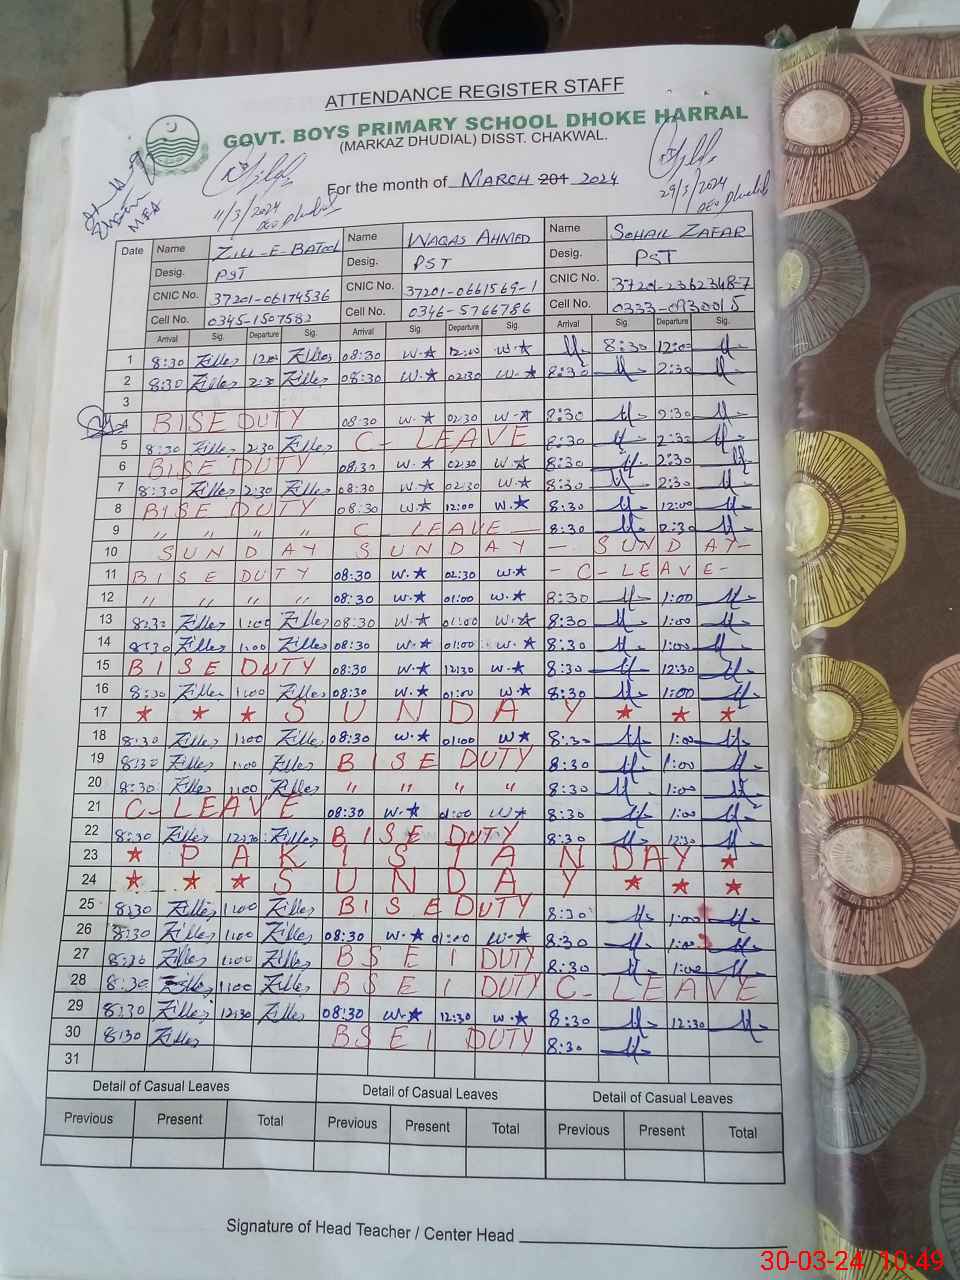 ATTENDANCE REGISTER STAFF
GOVT. BOYS PRIMARY SCHOOL DHOKE HARRAL
(MARKAZ DHUDIAL) DISST. CHAKWAL.
For the month of MARCH 201 2024
11/3/2024
29/3/2024
MEA
Date Name ZILL-E-BATOOL Name WAQAS AHMED Name SOHAIL ZAFAR
Desig. PST Desig. PST Desig. PST
CNIC No. 37201-06174536 CNIC No. 37201-0661569-1 CNIC No. 37201-2362348-7
Cell No. 0345-1507582 Cell No. 0346-5766786 Cell No. 0333-0930015
Arrival Sig. Departure Sig. Arrival Sig. Departure Sig. Arrival Sig. Departure Sig.
1 8:30 Zilles 12:00 Zilles 08:30 W.★ 12:00 W.★ 8:30 12:00
2 8:30 Zilles 2:30 Zilles 08:30 W.★ 02:30 W.★ 8:30 2:30
3
4 BISE DUTY 08:30 W.★ 02:30 W.★ 8:30 2:30
5 8:30 Zilles 2:30 Zilles C-LEAVE 8:30 2:30
6 BISE DUTY 08:30 W.★ 02:30 W.★ 8:30 2:30
7 8:30 Zilles 2:30 Zilles 08:30 W.★ 02:30 W.★ 8:30 2:30
8 BISE DUTY 08:30 W.★ 12:00 W.★ 8:30 12:00
9 " " " " C LEAVE 8:30 2:30
10 SUNDAY SUNDAY - SUNDAY -
11 BISE DUTY 08:30 W.★ 02:30 W.★ - C-LEAVE -
12 " " " " 08:30 W.★ 01:00 W.★ 8:30 1:00
13 8:30 Zilles 1:00 Zilles 08:30 W.★ 01:00 W.★ 8:30 1:00
14 8:30 Zilles 1:00 Zilles 08:30 W.★ 01:00 W.★ 8:30 1:00
15 BISE DUTY 08:30 W.★ 12:30 W.★ 8:30 12:30
16 8:30 Zilles 1:00 Zilles 08:30 W.★ 01:00 W.★ 8:30 1:00
17 ★ ★ ★ SUNDAY ★ ★ ★
18 8:30 Zilles 1:00 Zilles 08:30 W.★ 01:00 W★ 8:30 1:00
19 8:30 Zilles 1:00 Zilles BISE DUTY 8:30 1:00
20 8:30 Zilles 1:00 Zilles " " " " 8:30 1:00
21 C-LEAVE 08:30 W.★ 01:00 W★ 8:30 1:00
22 8:30 Zilles 12:30 Zilles BISE DUTY 8:30 12:30
23 ★ PAKISTAN DAY ★
24 ★ ★ ★ SUNDAY ★ ★ ★
25 8:30 Zilles 1:00 Zilles BISE DUTY 8:30 1:00
26 8:30 Zilles 1:00 Zilles 08:30 W.★ 01:00 W.★ 8:30 1:00
27 8:30 Zilles 1:00 Zilles BSEI DUTY 8:30 1:00
28 8:30 Zilles 1:00 Zilles BSEI DUTY C-LEAVE
29 8:30 Zilles 12:30 Zilles 08:30 W.★ 12:30 W.★ 8:30 12:30
30 8:30 Zilles BSEI DUTY 8:30
31
Detail of Casual Leaves Detail of Casual Leaves Detail of Casual Leaves
Previous Present Total Previous Present Total Previous Present Total
Signature of Head Teacher / Center Head
30-03-24 10:49